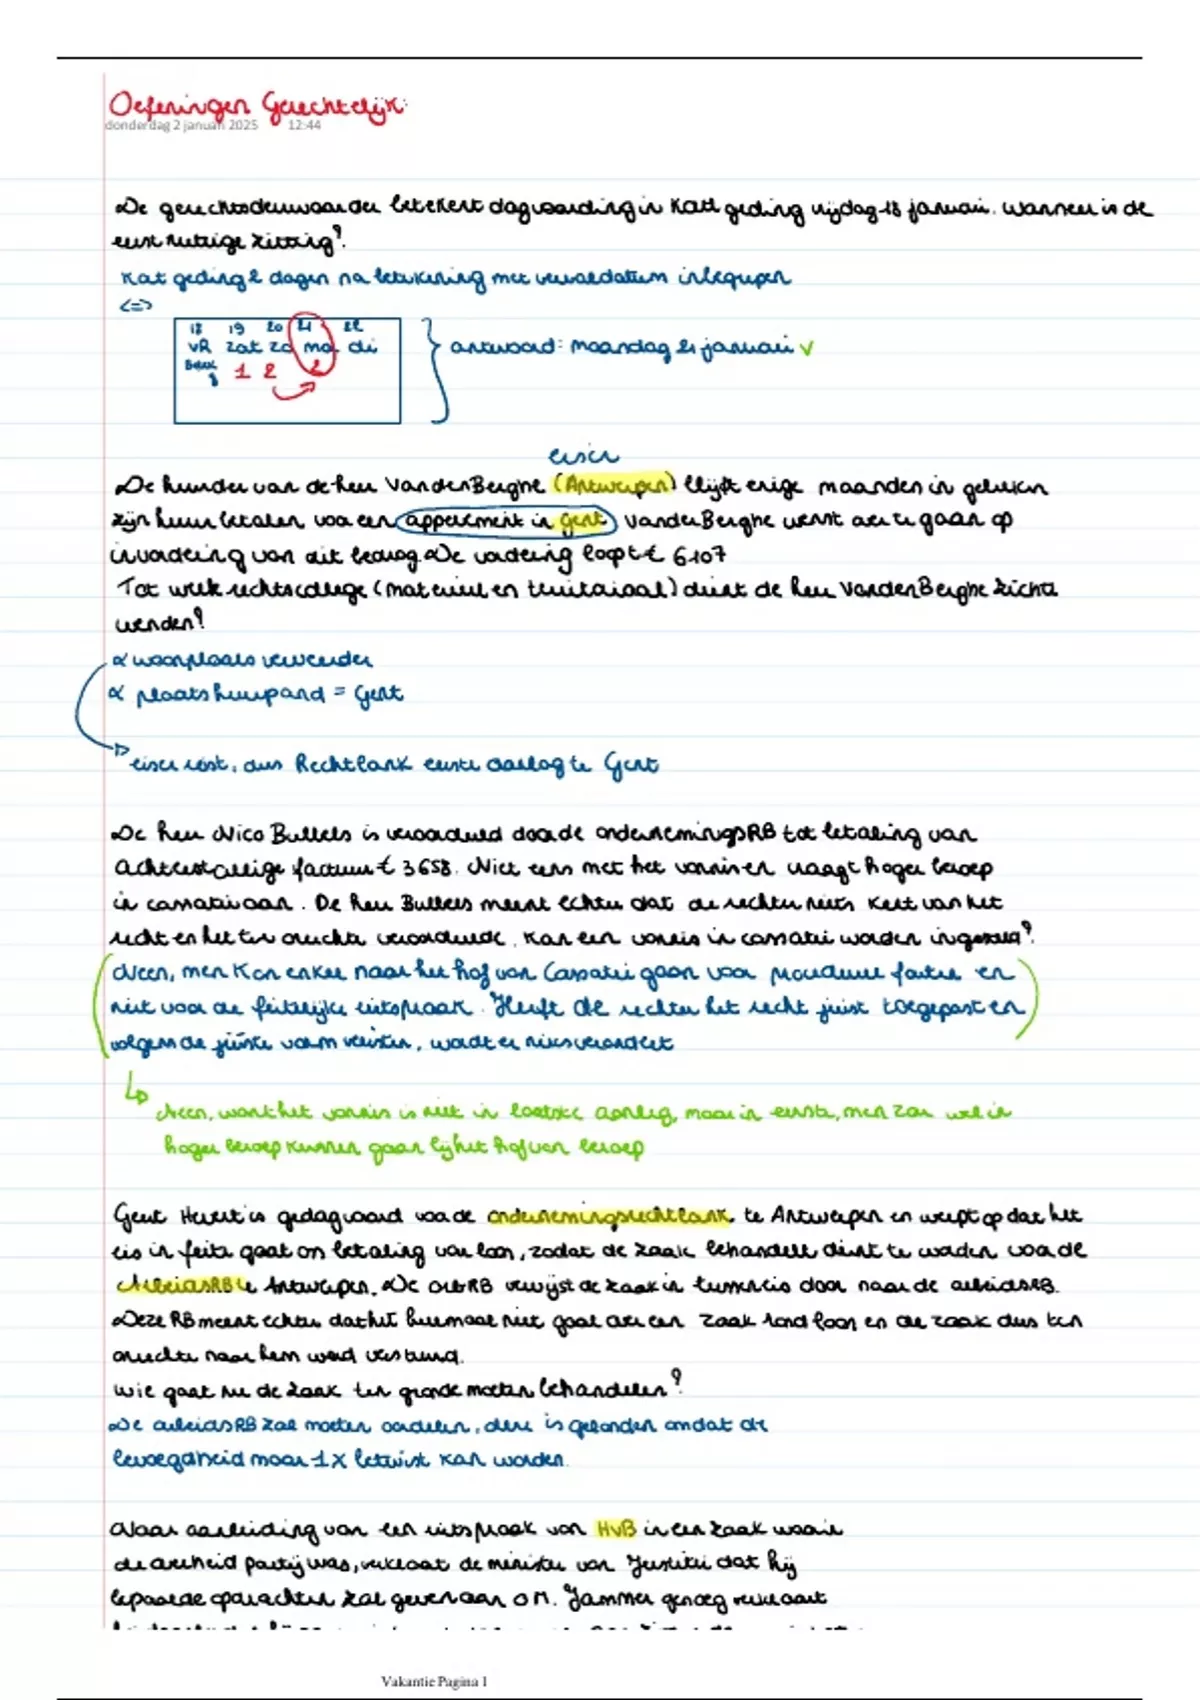 Oefeningen Gerechtelijk
donderdag 2 januari 2025 12:44
De gerechtsdeurwaarder betekent dagvaarding in Kort geding vrijdag 18 januari. Wanneer is de
eerst nuttige zitting?
Kort geding 2 dagen na betekening met vervaldatum inbegrepen
<=>
18 19 20 21 22
VR zat zo ma di
1 2 2
antwoord: maandag 21 januari ✓
eiser
De huurder van de heer VandenBerghe (Antwerpen) blijft enige maanden in gebreken
zijn huur betalen voor een appartement in Gent VandenBerghe wenst over te gaan op
invordering van dit bedrag. De vordering loopt € 6.107
Tot welk rechtscollege (materieel en territoriaal) dient de heer VandenBerghe zich te
wenden?
α woonplaats verweerder
α plaats huurpand = Gent
eiser kiest, dus Rechtbank eerste aanleg te Gent
De heer Nico Bullels is veroordeeld door de ondernemingsRB tot betaling van
achterstallige factuur € 3658. Niet eens met het vonnis en vraagt hoger beroep
in cassatie aan. De heer Bullels meent echter dat de rechter niets kent van het
recht en het ten onrechte veroordeelde. Kan een vonnis in cassatie worden ingesteld?
Neen, men kan enkel naar het hof van Cassatie gaan voor procedure fouten en
niet voor de feitelijke uitspraak. Heeft de rechter het recht juist toegepast en
volgens de juiste vormvereisten, wordt er niks veranderd
Neen, want het vonnis is niet in laatste aanleg, maar in eerste, men zou wel in
hoger beroep kunnen gaan bij het hof van beroep
Geert Hevert is gedagvaard voor de ondernemingsrechtbank te Antwerpen en werpt op dat het
eis in feite gaat om betaling van loon, zodat de zaak behandelt dient te worden voor de
ArbeidsRB te Antwerpen. De ondRB verwijst de zaak in tussenvonnis door naar de arbeidsRB.
Deze RB meent echter dat het helemaal niet gaat over een zaak rond loon en de zaak dus ten
onrechte naar hem werd verstuurd.
Wie gaat nu de zaak ten gronde moeten behandelen?
De arbeidsRB zal moeten oordelen, deze is gebonden omdat de
bevoegdheid maar 1x betwist kan worden.
Naar aanleiding van een uitspraak van HvB in een zaak waarin
de overheid partij was, verklaart de minister van Justitie dat hij
bepaalde opdrachten zal geven aan OM. Jammer genoeg verklaart
Vakantie Pagina 1